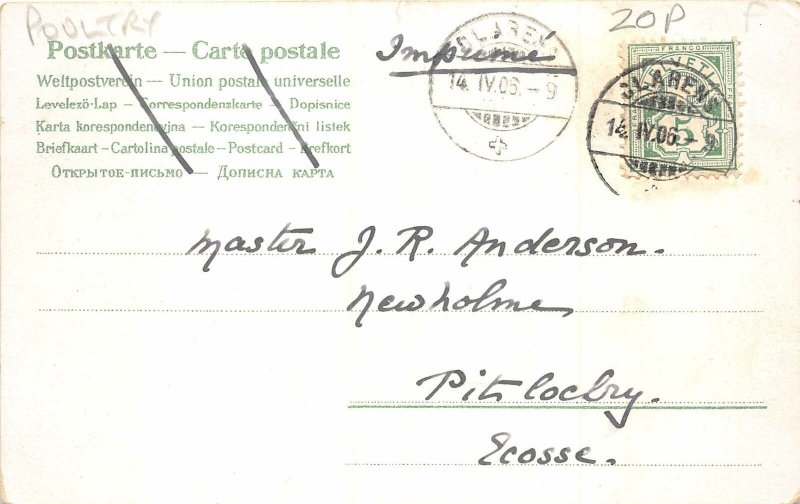 POULTRY
20P
F
Postkarte — Carte postale
Weltpostverein — Union postale universelle
Levelező-Lap — Korrespondenzkarte — Dopisnice
Karta korespondencyjna — Korespondenční listek
Briefkaart - Cartolina postale - Postcard - Brefkort
Открытое-письмо — Дописна карта
Imprimé
CLARENS
14. IV. 06. – 9
FRANCO
HELVETIA
5
CLARENS
14. IV. 06. – 9
Master J. R. Anderson.
Newholme
Pitlochry.
Ecosse.